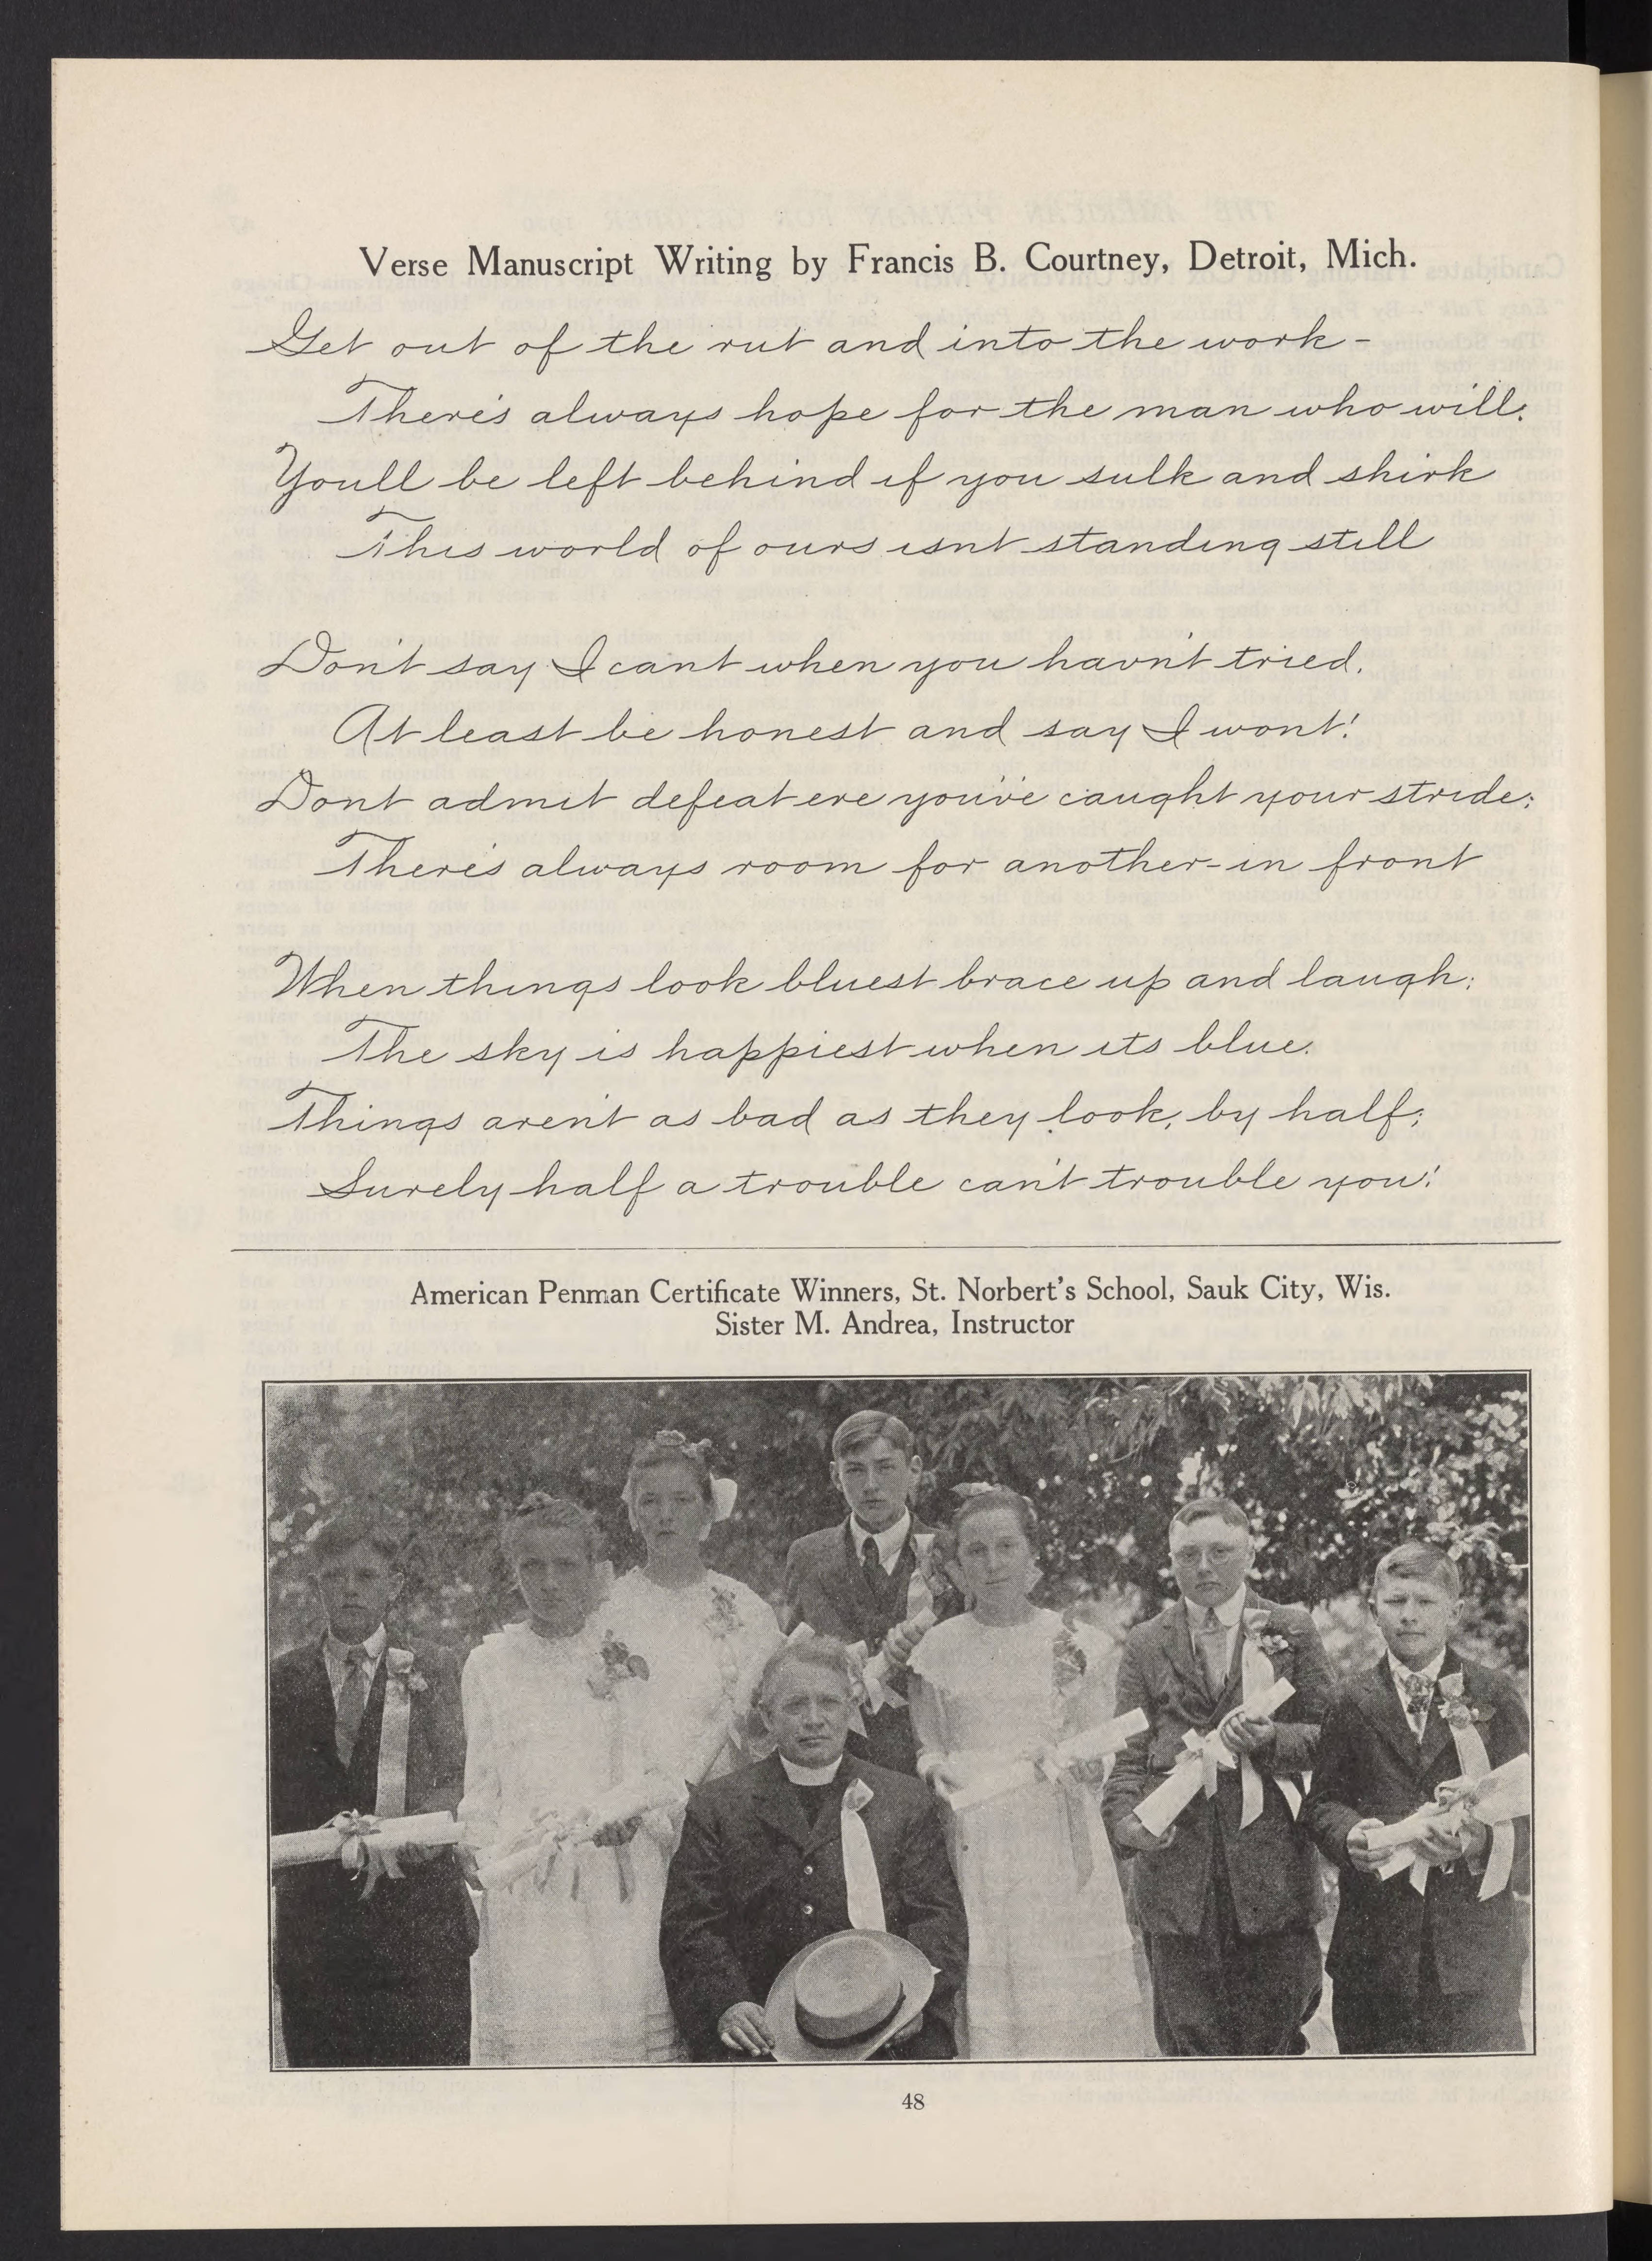 Verse Manuscript Writing by Francis B. Courtney, Detroit, Mich.
Get out of the rut and into the work -
There's always hope for the man who will:
Youll be left behind if you sulk and shirk
This world of ours isnt standing still
Don't say I cant when you havn't tried.
At least be honest and say I wont!
Dont admit defeat ere you've caught your stride:
There's always room for another-in front
When things look bluest brace up and laugh:
The sky is happiest when its blue.
Things aren't as bad as they look, by half;
Surely half a trouble can't trouble you!
American Penman Certificate Winners, St. Norbert's School, Sauk City, Wis.
Sister M. Andrea, Instructor
48